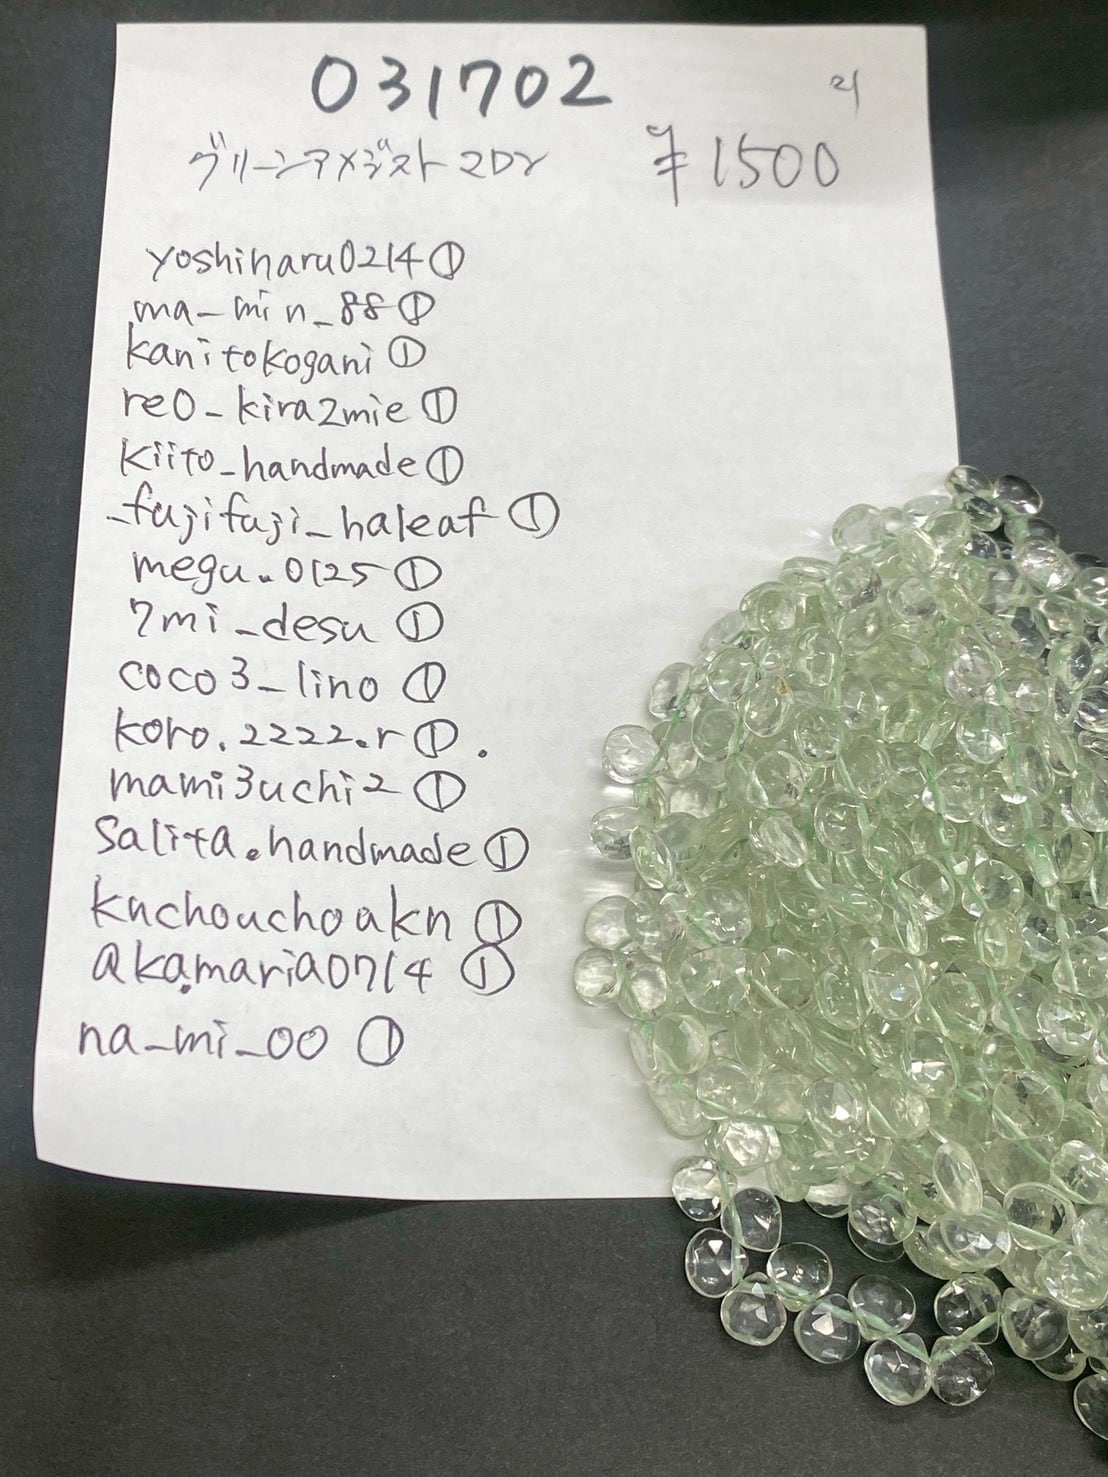 031702
グリーンアメジスト2Dr ¥1500
yoshiharu0214①
ma-min_88①
kanitokogani①
re0-kira2mie①
kiito_handmade①
_fujifuji_haleaf①
megu.0125①
7mi_desu①
coco3_lino①
koro.2222.r①.
mami3uchi2①
salita.handmade①
kuchouchoakn①
akamaria0714①
na_mi_00①